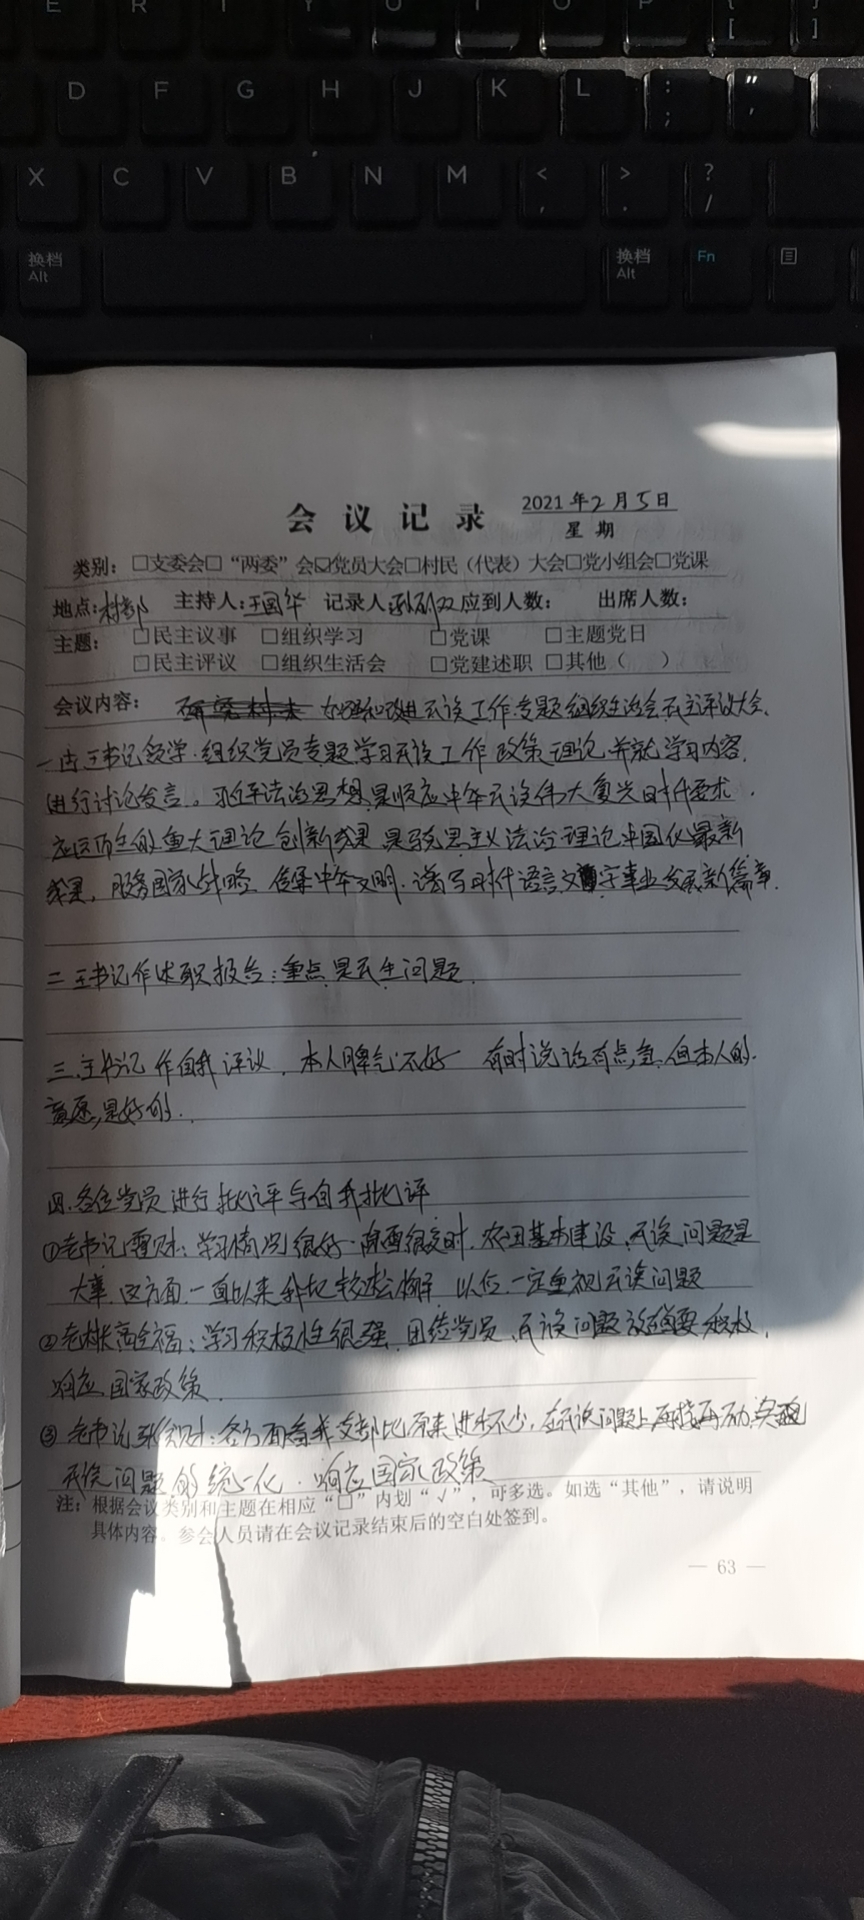 E R T Y U I O P { [ } ]
D F G H J K L : ; " '
X C V B N M < , > . ? /
换档 Alt 换档 Alt Fn
会议记录 2021年2月5日
星期
类别：□支委会□“两委”会☑党员大会□村民（代表）大会□党小组会□党课
地点：村部 主持人：王国华 记录人 应到人数： 出席人数：
主题：□民主议事 □组织学习 □党课 □主题党日
□民主评议 □组织生活会 □党建述职 □其他（ ）
会议内容： 加强和改进民族工作专题组织生活会民主评议大会、
一由王书记领学·组织党员专题学习民族工作政策理论并就学习内容，
进行讨论发言。习近平法治思想是顺应中华民族伟大复兴时代要求，
应运而生的重大理论创新成果是马克思主义法治理论中国化最新
成果，服务国家战略 传承中华文明·谱写时代语言文字事业发展新篇章．
二王书记作述职报告：重点是民生问题．
三、王书记作自我评议．本人脾气不好 有时说话有点急 但本人的．
意愿是好的．
四．各位党员进行批评与自我批评
①老书记 财：学习情况很好 农田基本建设．民族问题是
大事 这方面一直以来我把 以后一定重视民族问题
②老村长高全福：学习积极性很强．团结党员．民族问题 要积极．
响应国家政策．
③老书记张 财：各方面看我支部比原来进步不少，在民族问题上再接再厉
民族问题的统一化．响应国家政策
注：根据会议类别和主题在相应“□”内划“√”，可多选。如选“其他”，请说明
具体内容。参会人员请在会议记录结束后的空白处签到。
— 63 —